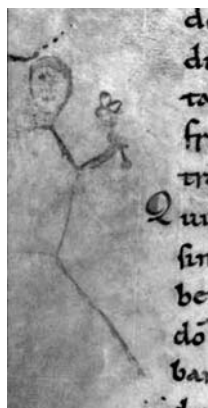 de
di
ta
fr
tra
Q
uui
sin
be
dō
bar